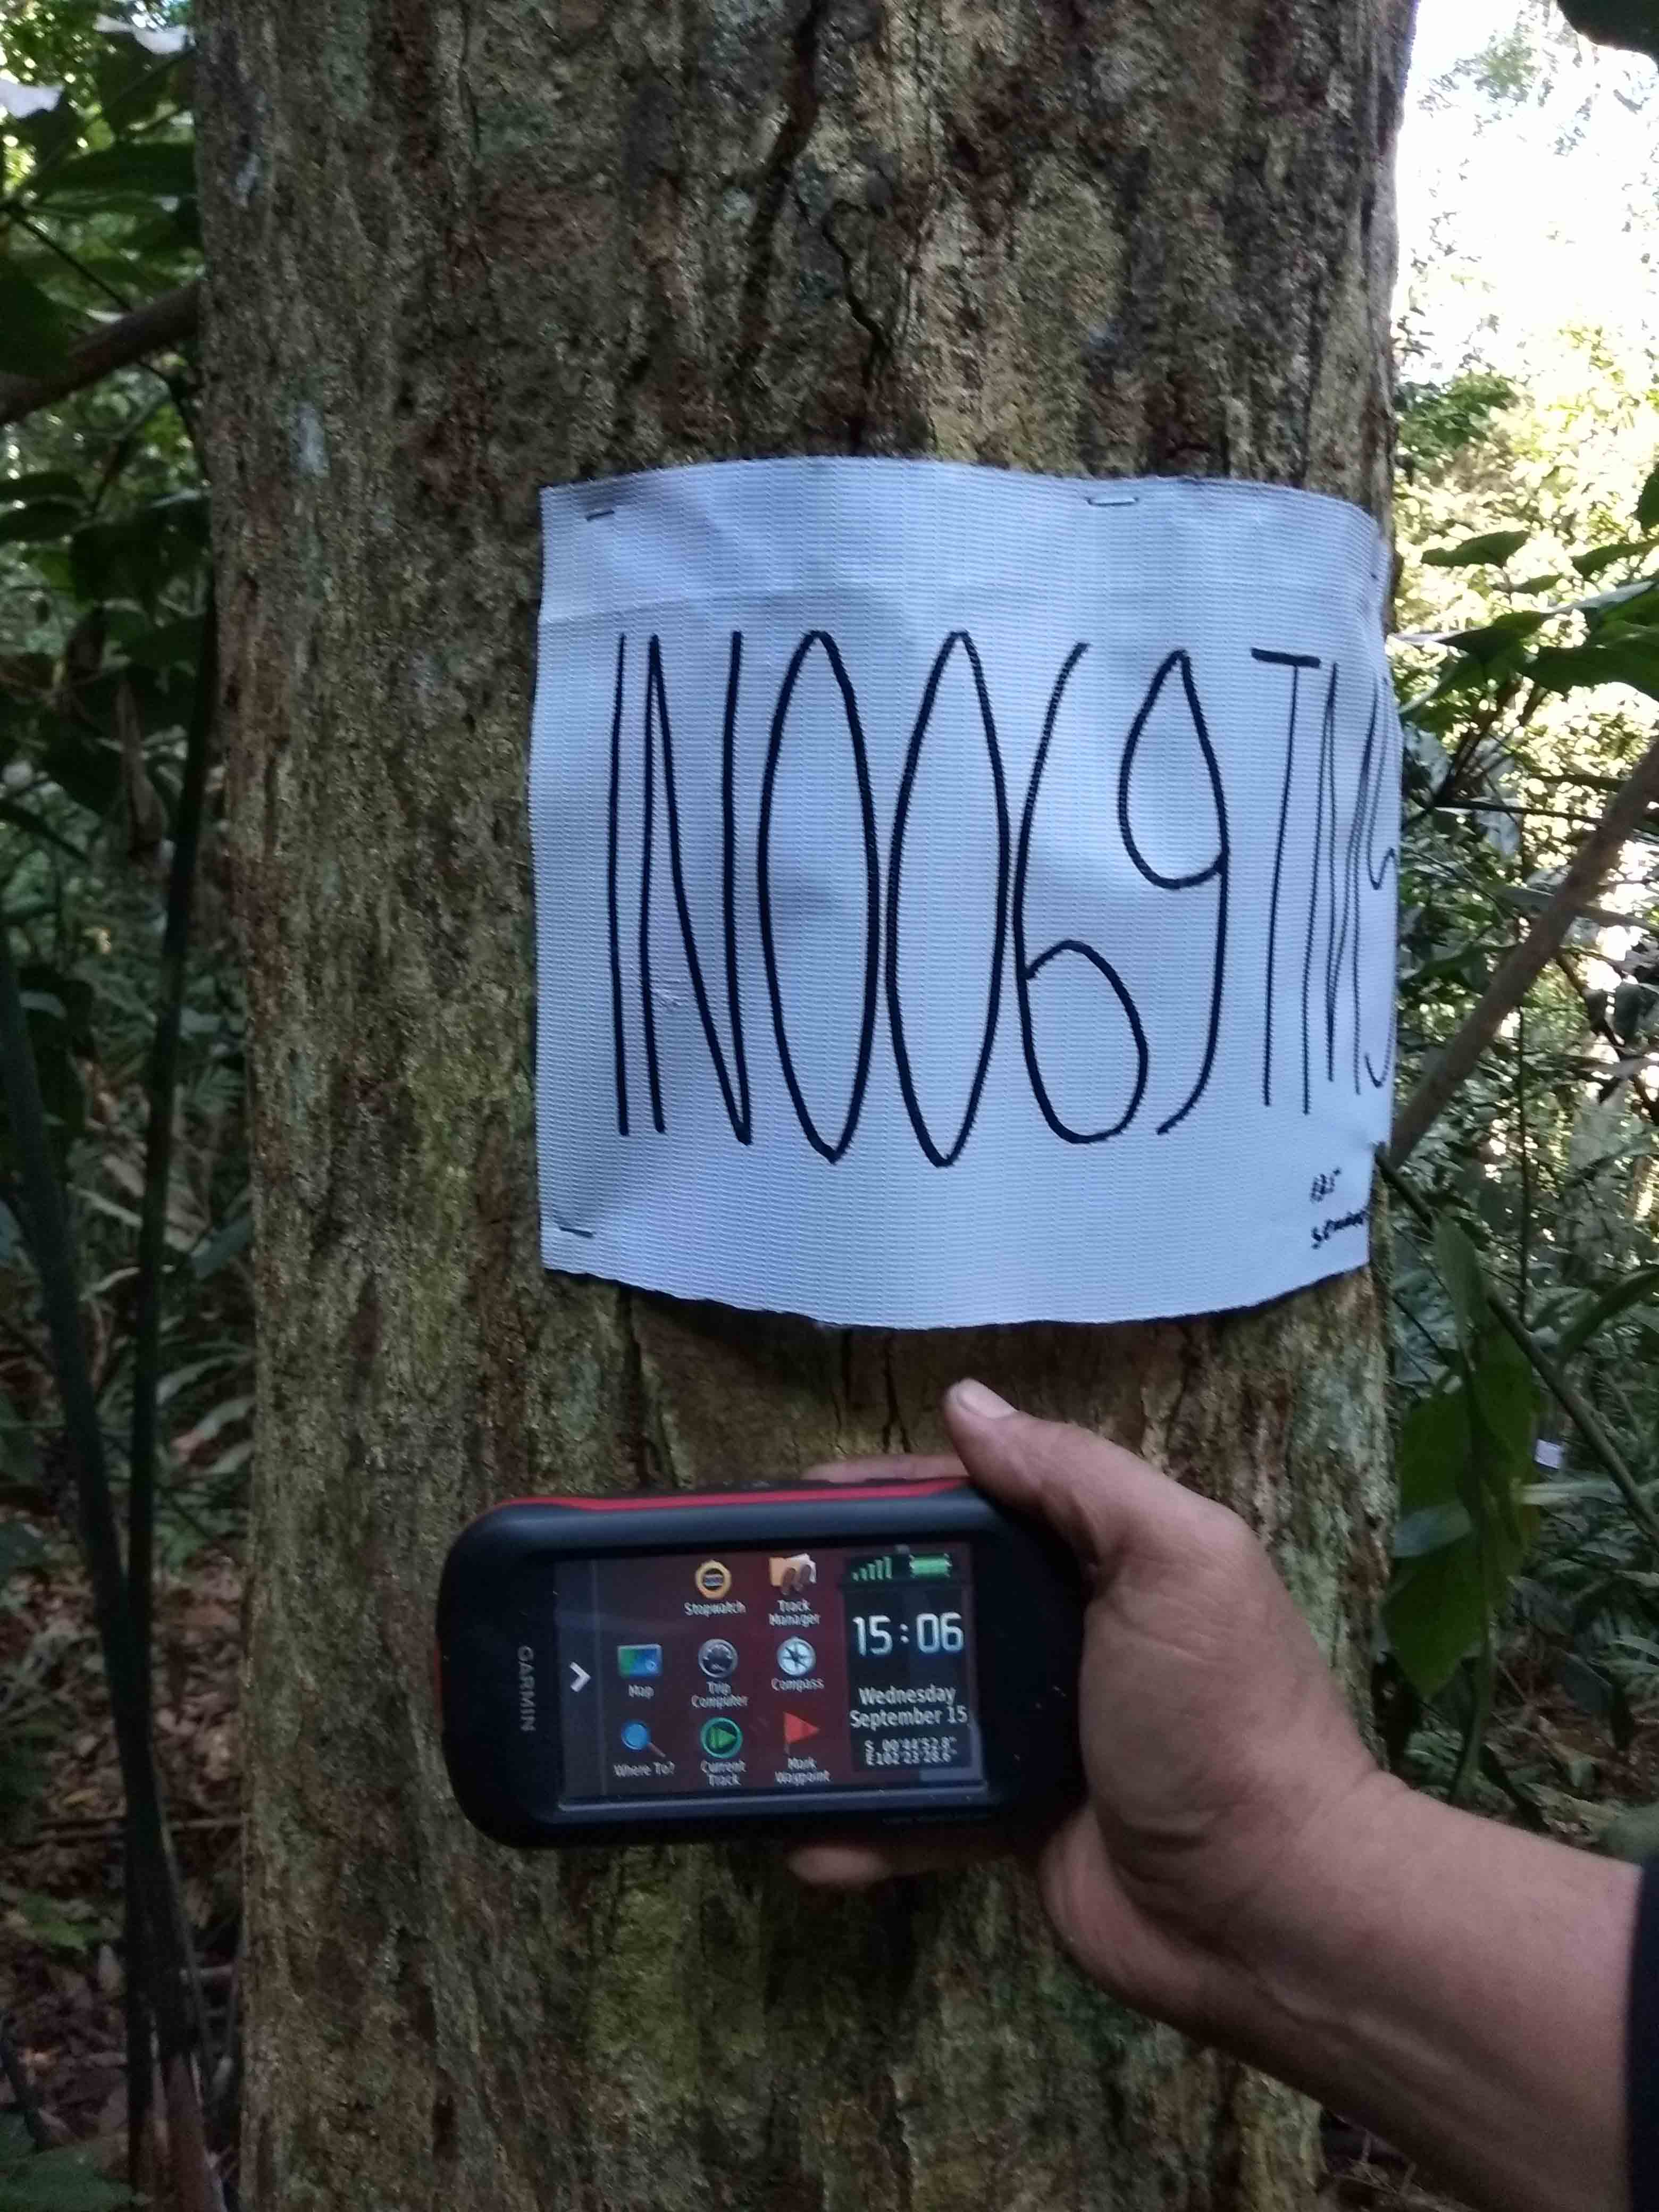 IN0069
GARMIN
Stopwatch
Track
Manager
Map
Trip
Computer
Compass
Where To?
Current
Track
Mark
Waypoint
15:06
Wednesday
September 15
S 00°44'52.8"
E102°23'28.6"